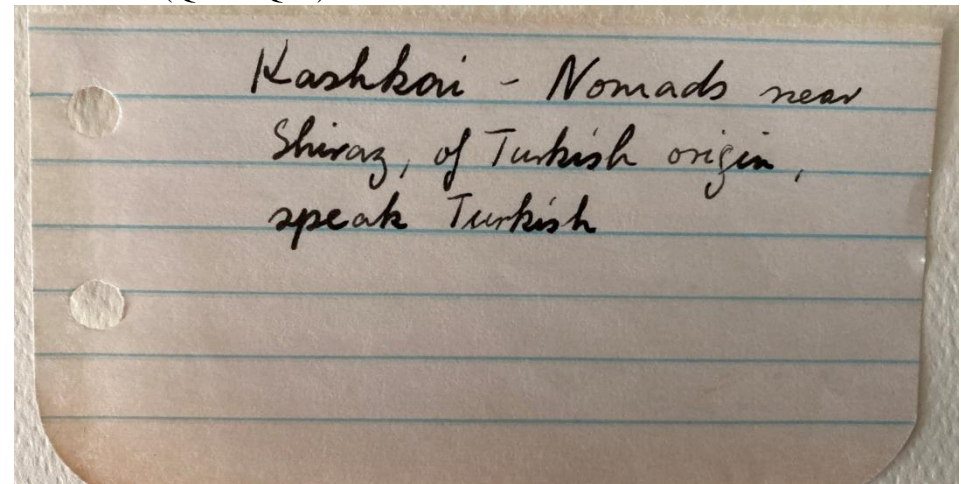 Kashkai - Nomads near
Shiraz, of Turkish origin,
speak Turkish